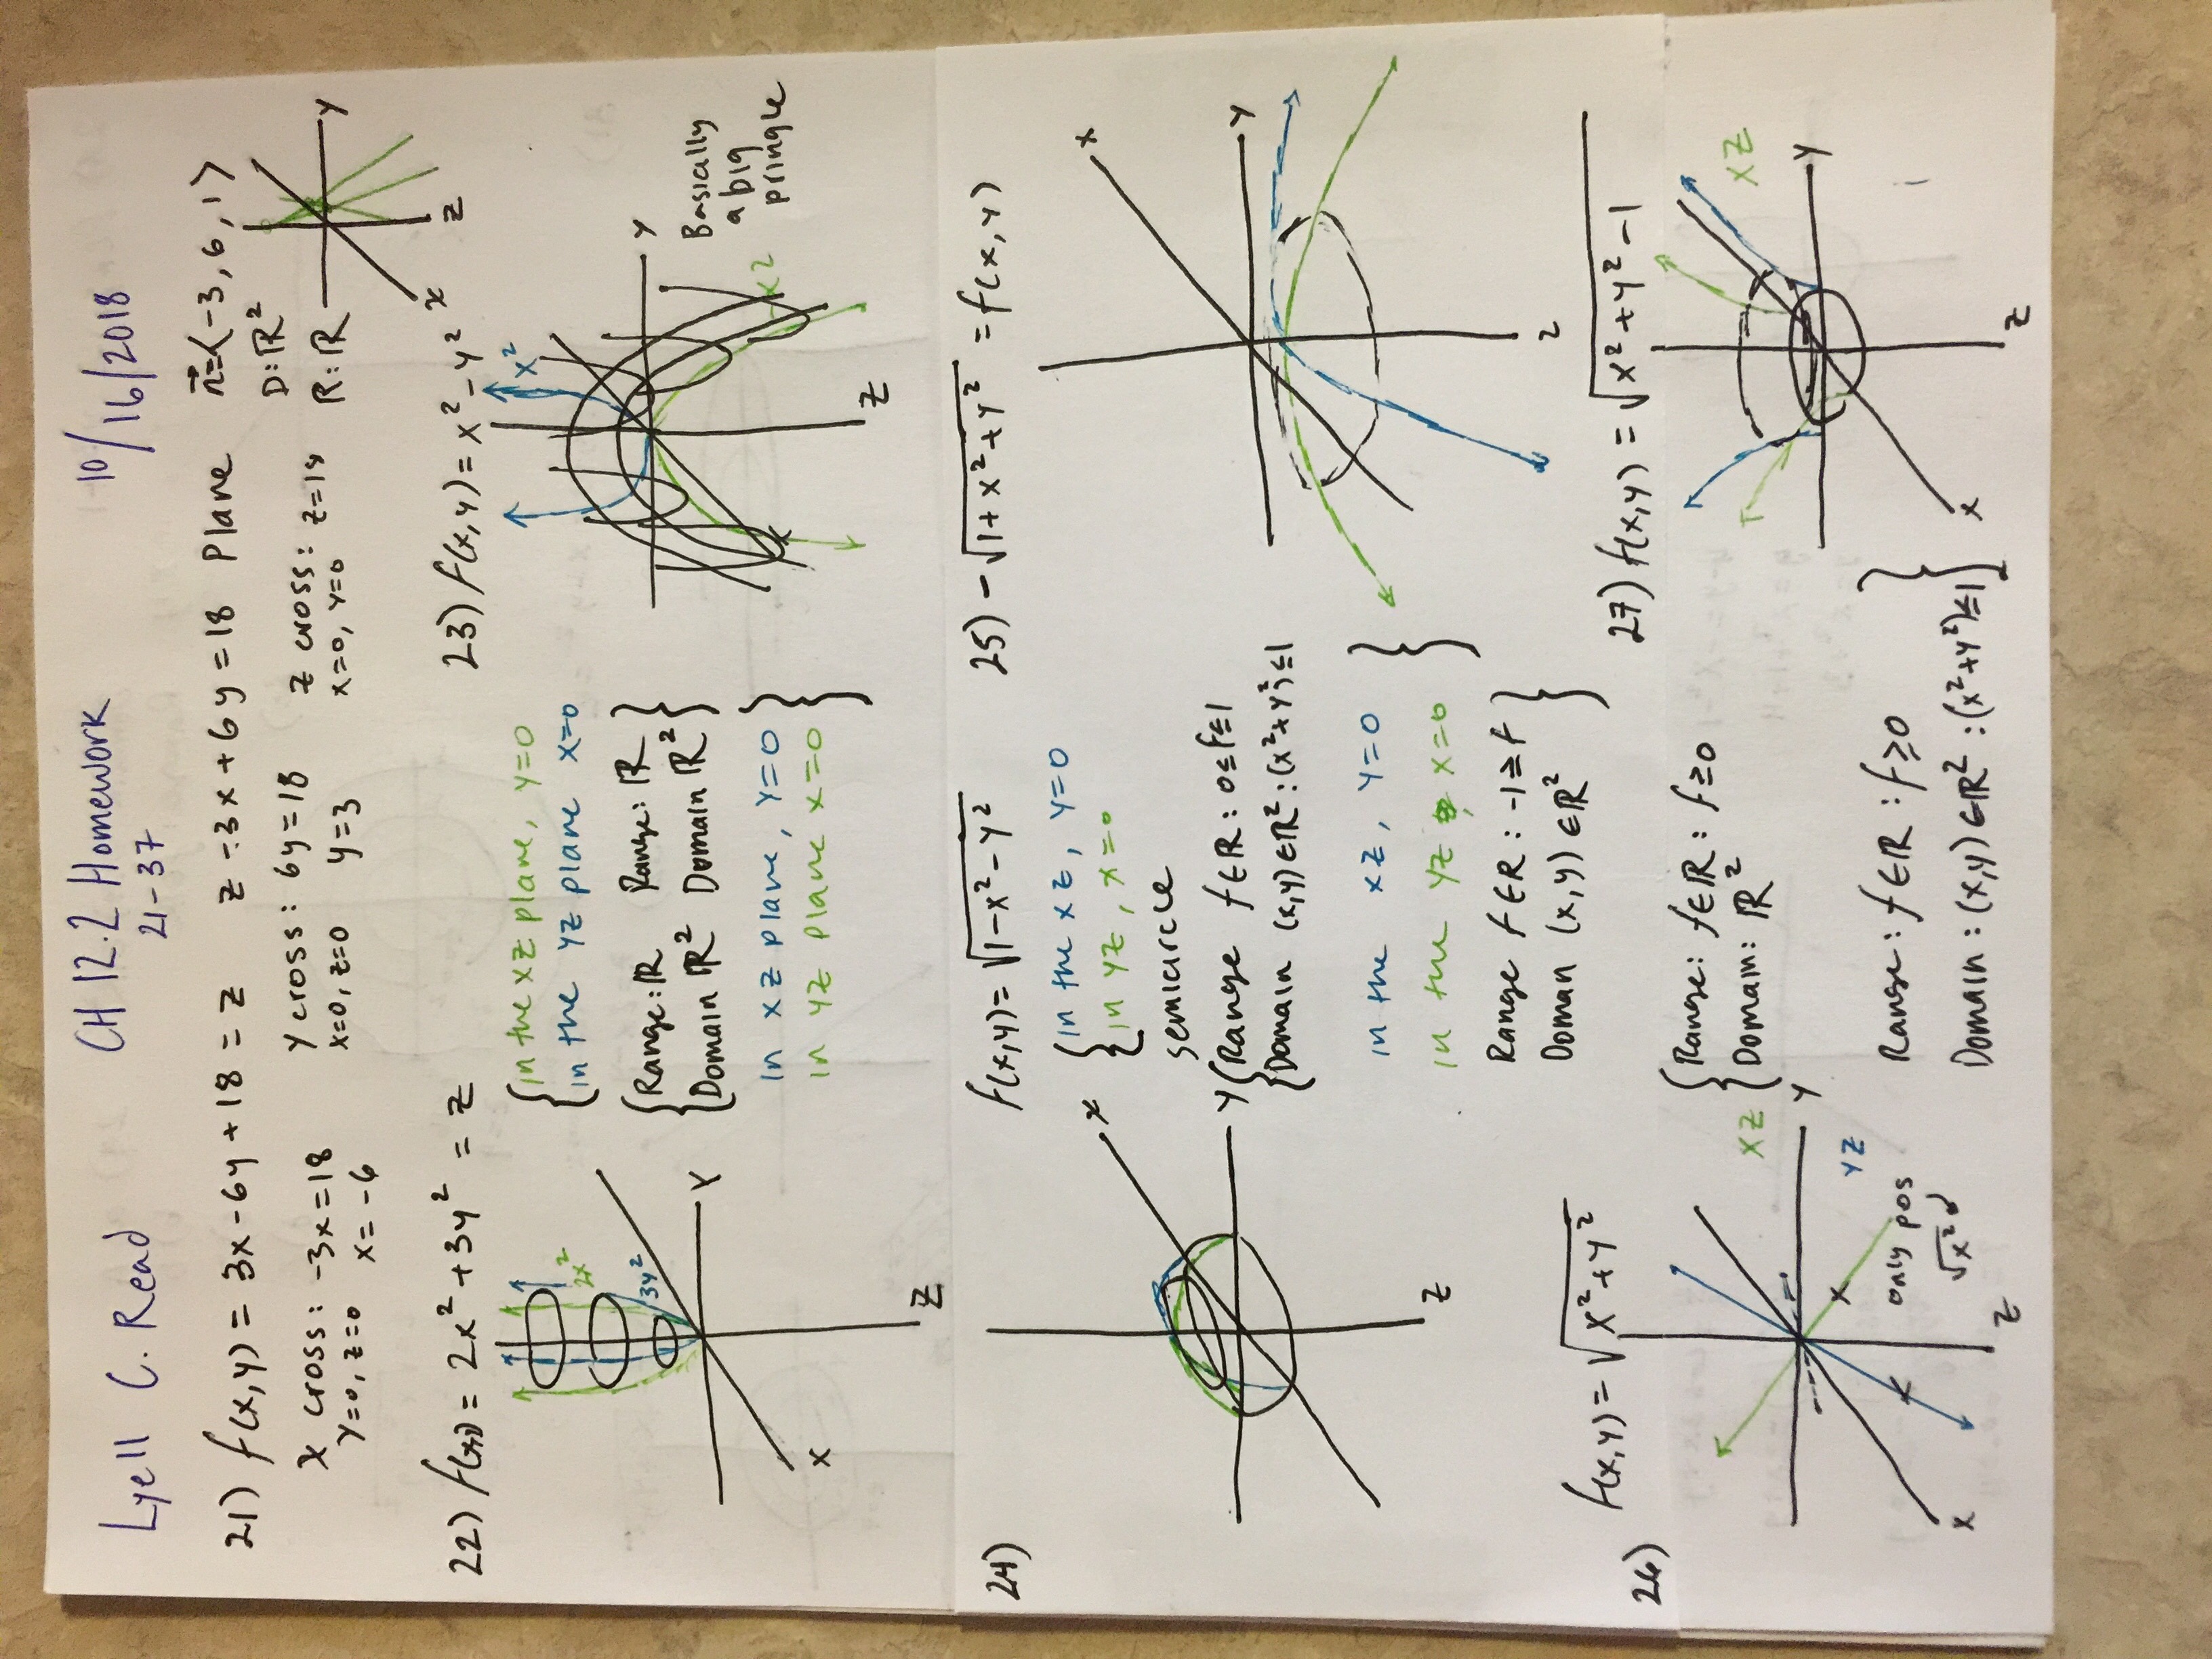 Lyell C. Read
CH 12.2 Homework
21-37
10/16/2018
21) f(x,y) = 3x-6y+18 = z   z-3x+6y=18 Plane   n⃗=⟨-3,6,1⟩
x cross: -3x=18
y=0, z=0   x=-6
y cross: 6y=18
x=0, z=0   y=3
z cross: z=18
x=0, y=0
D: ℝ²
R: ℝ
Y
x
z
22) f(x,y) = 2x²+3y² = z
2x²
3y²
Y
X
Z
{in the xz plane, y=0
in the yz plane x=0
{Range: ℝ
Domain ℝ²
Range: ℝ
Domain ℝ²}
in xz plane, y=0
in yz plane x=0 }
23) f(x,y) = x²-y²
x²
Y
x
Z
Basically
a big
pringle
24) f(x,y) = √(1-x²-y²)
x
Y
Z
{in the xz, y=0
in yz, x=0
semicircle
{Range f∈ℝ: 0≤f≤1
Domain (x,y)∈ℝ²: (x²+y²)≤1
25) -√(1+x²+y²) = f(x,y)
x
Y
z
in the xz, y=0
in the yz x=0 }
Range f∈R: -1≥f
Doman (x,y)∈ℝ² }
26) f(x,y) = √(x²+y²)
XZ
Y
YZ
x
only pos
√x²
x
Z
{Range: f∈ℝ: f≥0
Domain: ℝ²
27) f(x,y) = √(x²+y²-1)
XZ
Y
x
Z
Range: f∈ℝ: f≥0
Domain: (x,y)∈ℝ²: (x²+y²)≤1 }